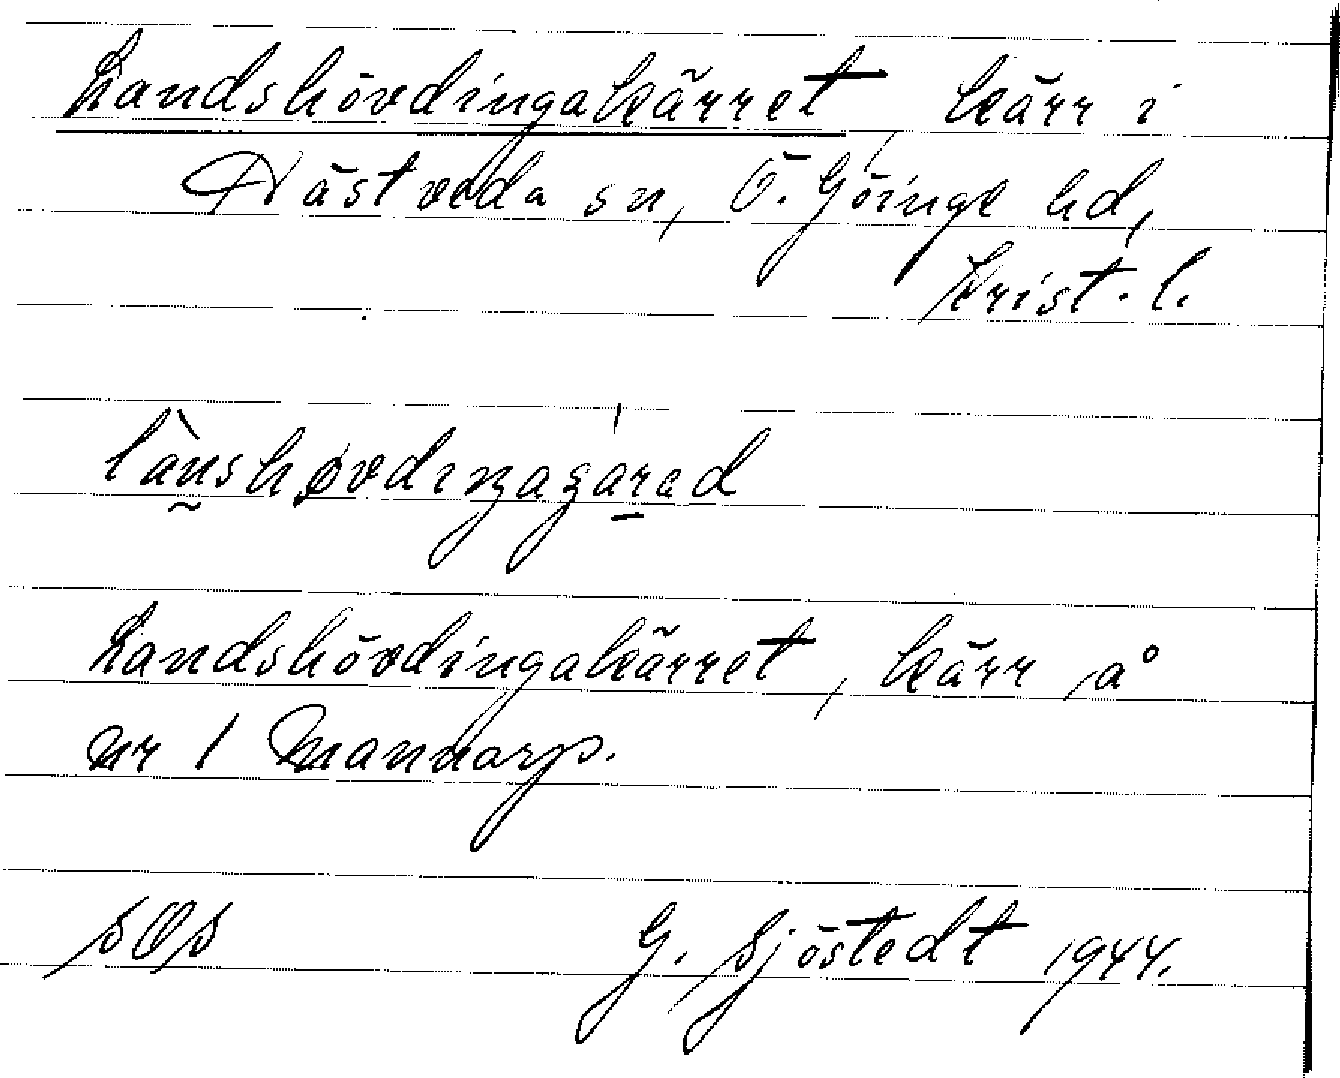 Landshövdingakärret, kärr i
Nästveda sn, Ö. Göinge hd,
Krist. l.
lànshøvdıŋagárad
Landshövdingakärret, kärr å
nr 1 Mannarp.
SOS G. Sjöstedt 1944.